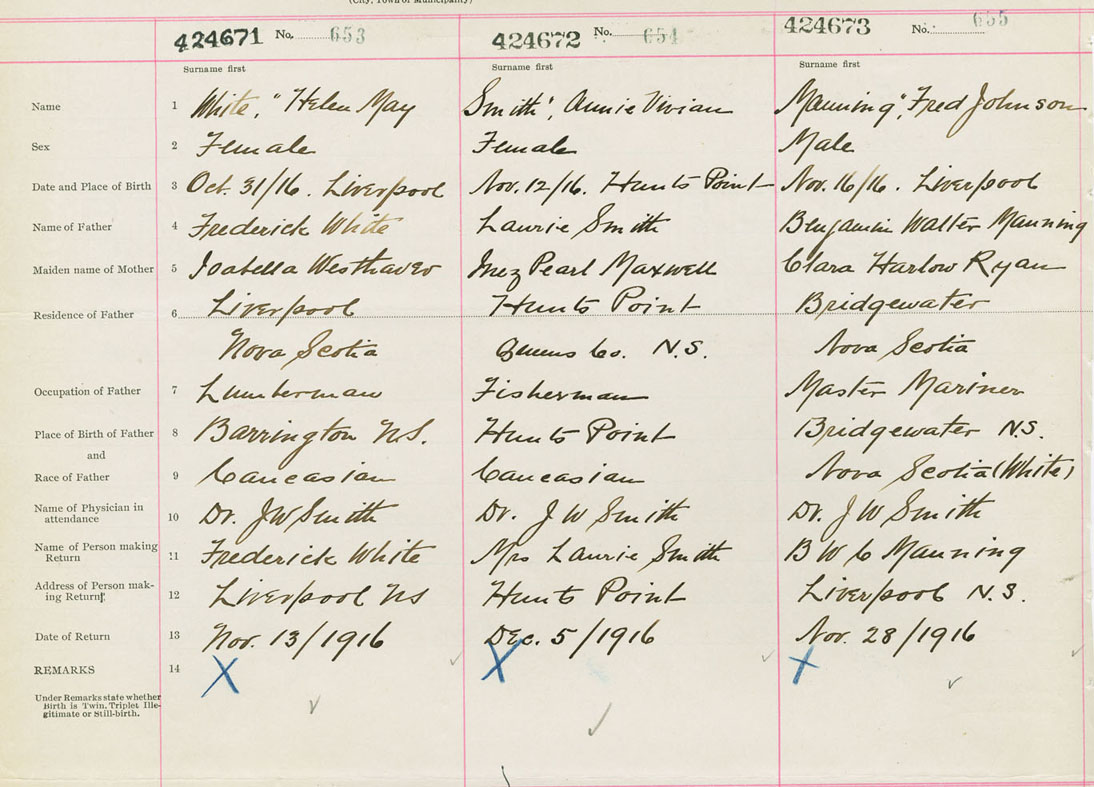 (City, Town or Municipality)
424671 No. 653 424672 No. 654 424673 No. 655
Surname first Surname first Surname first
Name 1 White, " Helen May Smith", Annie Vivian Manning", Fred Johnson
Sex 2 Female Female Male
Date and Place of Birth 3 Oct. 31/16. Liverpool Nov. 12/16. Hunts Point Nov. 16/16. Liverpool
Name of Father 4 Frederick White Laurie Smith Benjamin Walter Manning
Maiden name of Mother 5 Isabella Westhaver Inez Pearl Maxwell Clara Harlow Ryan
Residence of Father 6 Liverpool Hunts Point Bridgewater
Nova Scotia Queens Co. N.S. Nova Scotia
Occupation of Father 7 Lumberman Fisherman Master Mariner
Place of Birth of Father 8 Barrington N.S. Hunts Point Bridgewater N.S.
and
Race of Father 9 Caucasian Caucasian Nova Scotia (White)
Name of Physician in
attendance 10 Dr. J W Smith Dr. J W Smith Dr. J W Smith
Name of Person making
Return 11 Frederick White Mrs Laurie Smith B W C Manning
Address of Person mak-
ing Return 12 Liverpool NS Hunts Point Liverpool N.S.
Date of Return 13 Nov. 13/1916 Dec. 5/1916 Nov. 28/1916
REMARKS 14 X X X
Under Remarks state whether
Birth is Twin, Triplet, Ille-
gitimate or Still-birth.